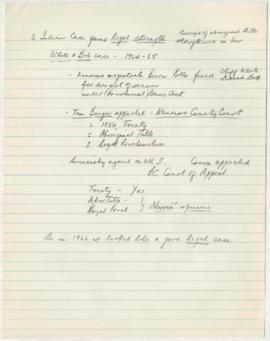 2 Indian Case gains legal strength
Concept of aboriginal title
strengthened in law
White & Bob case - 1964-65
- Nanaimo magistrate Lionel Potts fined
Clifford White
David Bob
for deer out of season
under (Provincial) Game Act
- Tom Berger appealed - Nanaimo County Court
1. 1854 Treaty
2. Aboriginal Title
3. Royal Proclamation
agreed on all 3. Crown appealed
BC Court of Appeal
Treaty - Yes
Abor Title -
Royal Procl
} Norris' opinion
So in 1966 it looked like a good legal case